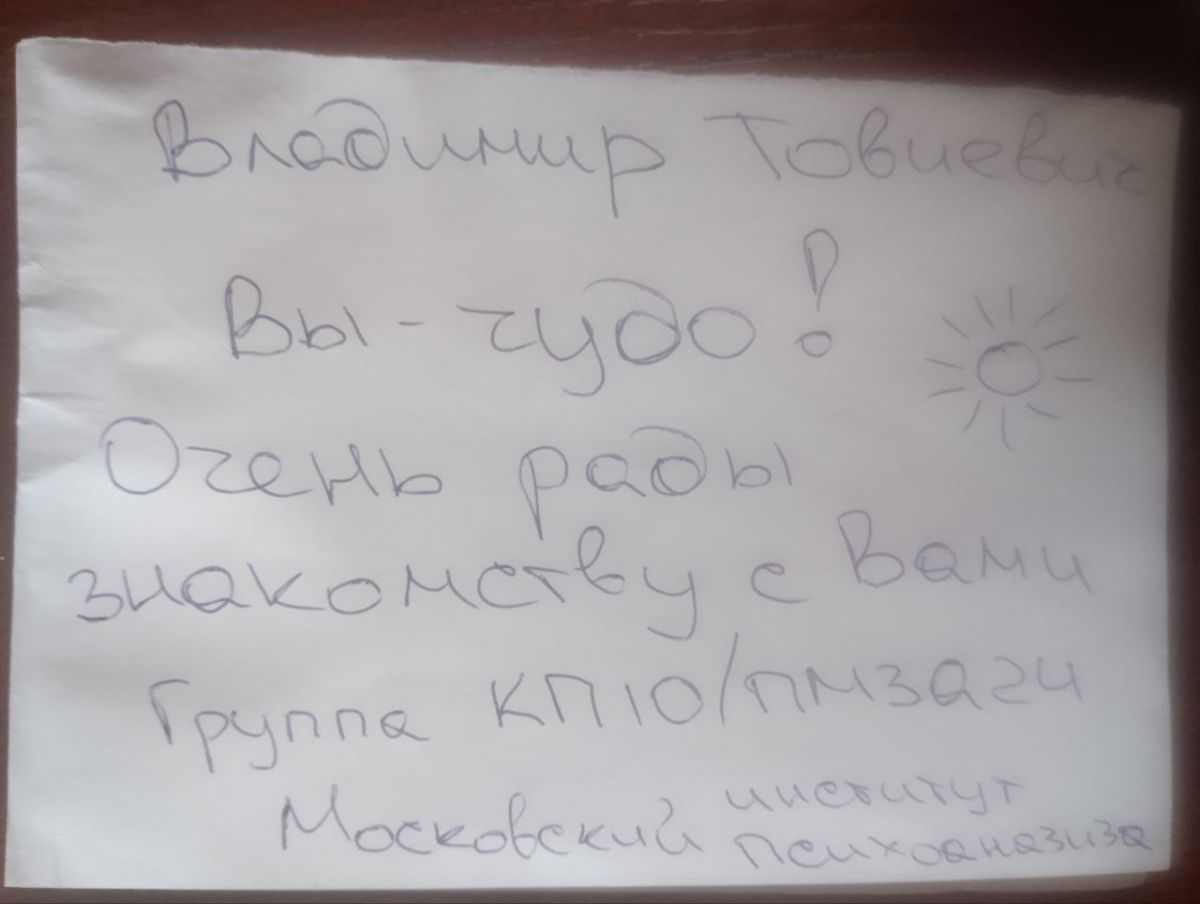 Владимир Товиевич
Вы - чудо!
Очень рады
знакомству с Вами
Группа КП10/ПМЗАО24
Московский институт
психоанализа